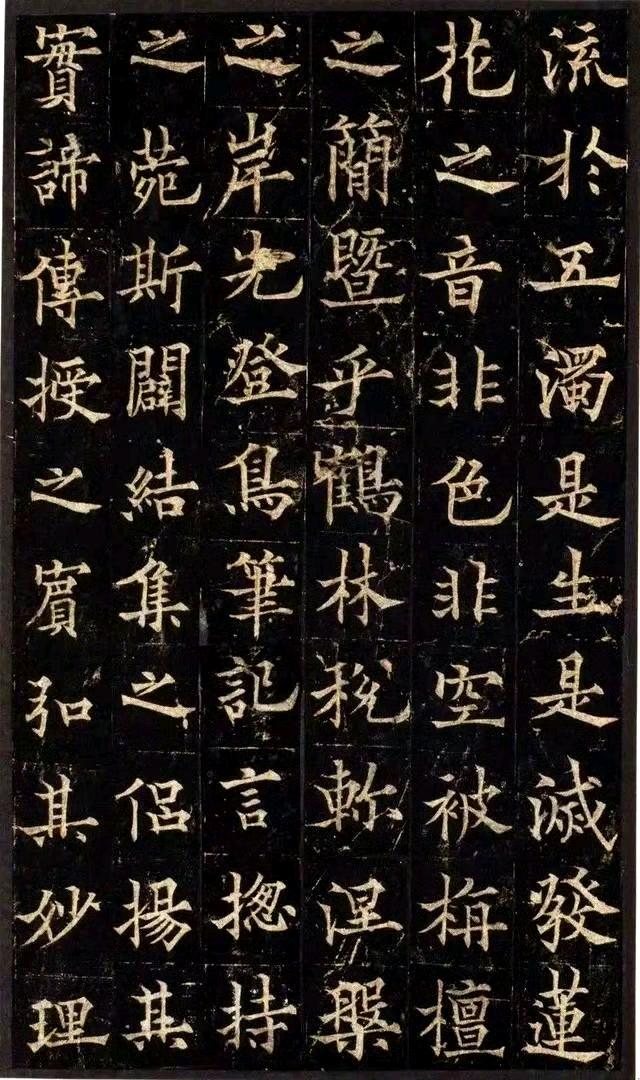 流於五濁是生是滅發蓮
花之音非色非空被栴檀
之簡暨乎鶴林稅軫涅槃
之岸先登鳥筆記言摠持
之菀斯闢結集之侶揚其
實諦傳授之賓弘其妙理